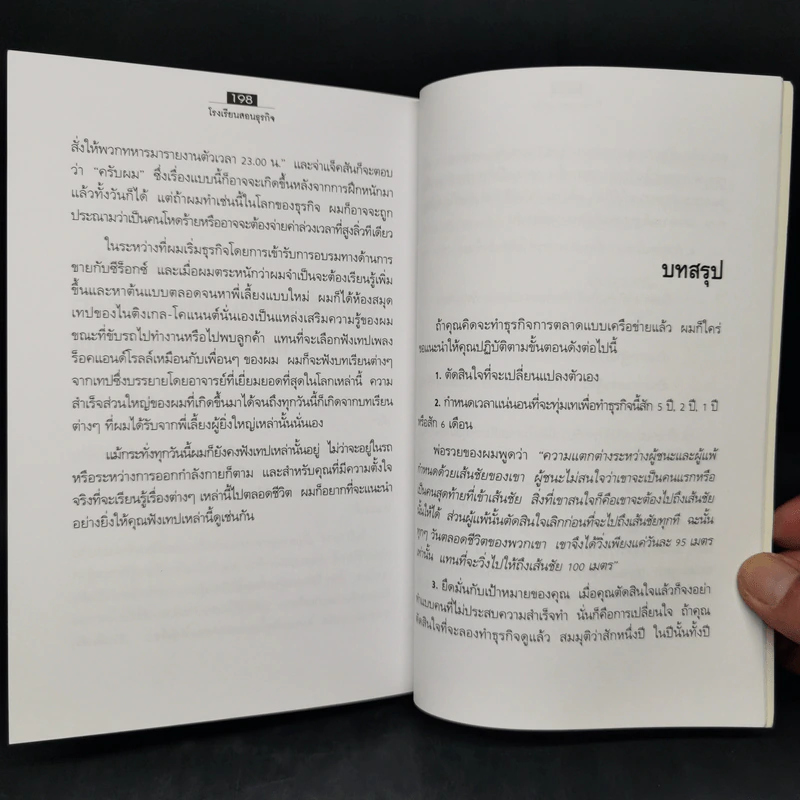 198
โรงเรียนสอนธุรกิจ
สั่งให้พวกทหารมารายงานตัวเวลา 23.00 น." และจ่าแจ็คสันก็จะตอบ
ว่า "ครับผม" ซึ่งเรื่องแบบนี้ก็อาจจะเกิดขึ้นหลังจากการฝึกหนักมา
แล้วทั้งวันก็ได้ แต่ถ้าผมทำเช่นนี้ในโลกของธุรกิจ ผมก็อาจจะถูก
ประณามว่าเป็นคนโหดร้ายหรืออาจจะต้องจ่ายค่าล่วงเวลาที่สูงลิ่วทีเดียว
ในระหว่างที่ผมเริ่มธุรกิจโดยการเข้ารับการอบรมทางด้านการ
ขายกับซีร็อกซ์ และเมื่อผมตระหนักว่าผมจำเป็นจะต้องเรียนรู้เพิ่ม
ขึ้นและหาต้นแบบตลอดจนหาพี่เลี้ยงแบบใหม่ ผมก็ได้ห้องสมุด
เทปของไนติงเกล-โคแนนต์นั่นเองเป็นแหล่งเสริมความรู้ของผม
ขณะที่ขับรถไปทำงานหรือไปพบลูกค้า แทนที่จะเลือกฟังเทปเพลง
ร็อคแอนด์โรลล์เหมือนกับเพื่อนๆ ของผม ผมก็จะฟังบทเรียนต่างๆ
จากเทปซึ่งบรรยายโดยอาจารย์ที่เยี่ยมยอดที่สุดในโลกเหล่านี้ ความ
สำเร็จส่วนใหญ่ของผมที่เกิดขึ้นมาได้จนถึงทุกวันนี้ก็เกิดจากบทเรียน
ต่างๆ ที่ผมได้รับจากพี่เลี้ยงผู้ยิ่งใหญ่เหล่านั้นนั่นเอง
แม้กระทั่งทุกวันนี้ผมก็ยังคงฟังเทปเหล่านั้นอยู่ ไม่ว่าจะอยู่ในรถ
หรือระหว่างการออกกำลังกายก็ตาม และสำหรับคุณที่มีความตั้งใจ
จริงที่จะเรียนรู้เรื่องต่างๆ เหล่านี้ไปตลอดชีวิต ผมก็อยากที่จะแนะนำ
อย่างยิ่งให้คุณฟังเทปเหล่านี้ดูเช่นกัน
บทสรุป
ถ้าคุณคิดจะทำธุรกิจการตลาดแบบเครือข่ายแล้ว ผมก็ใคร่
ขอแนะนำให้คุณปฏิบัติตามขั้นตอนดังต่อไปนี้
1. ตัดสินใจที่จะเปลี่ยนแปลงตัวเอง
2. กำหนดเวลาแน่นอนที่จะทุ่มเทเพื่อทำธุรกิจนี้สัก 5 ปี, 2 ปี, 1 ปี
หรือสัก 6 เดือน
พ่อรวยของผมพูดว่า "ความแตกต่างระหว่างผู้ชนะและผู้แพ้
กำหนดด้วยเส้นชัยของเขา ผู้ชนะไม่สนใจว่าเขาจะเป็นคนแรกหรือ
เป็นคนสุดท้ายที่เข้าเส้นชัย สิ่งที่เขาสนใจก็คือเขาจะต้องไปถึงเส้นชัย
นั้นให้ได้ ส่วนผู้แพ้นั้นตัดสินใจเลิกก่อนที่จะไปถึงเส้นชัยทุกที ฉะนั้น
ทุกๆ วันตลอดชีวิตของพวกเขา เขาจึงได้วิ่งเพียงแค่วันละ 95 เมตร
เท่านั้น แทนที่จะวิ่งไปให้ถึงเส้นชัย 100 เมตร"
3. ยึดมั่นกับเป้าหมายของคุณ เมื่อคุณตัดสินใจแล้วก็จงอย่า
ทำแบบคนที่ไม่ประสบความสำเร็จทำ นั่นก็คือการเปลี่ยนใจ ถ้าคุณ
ตัดสินใจที่จะลองทำธุรกิจดูแล้ว สมมุติว่าสักหนึ่งปี ในปีนั้นทั้งปี